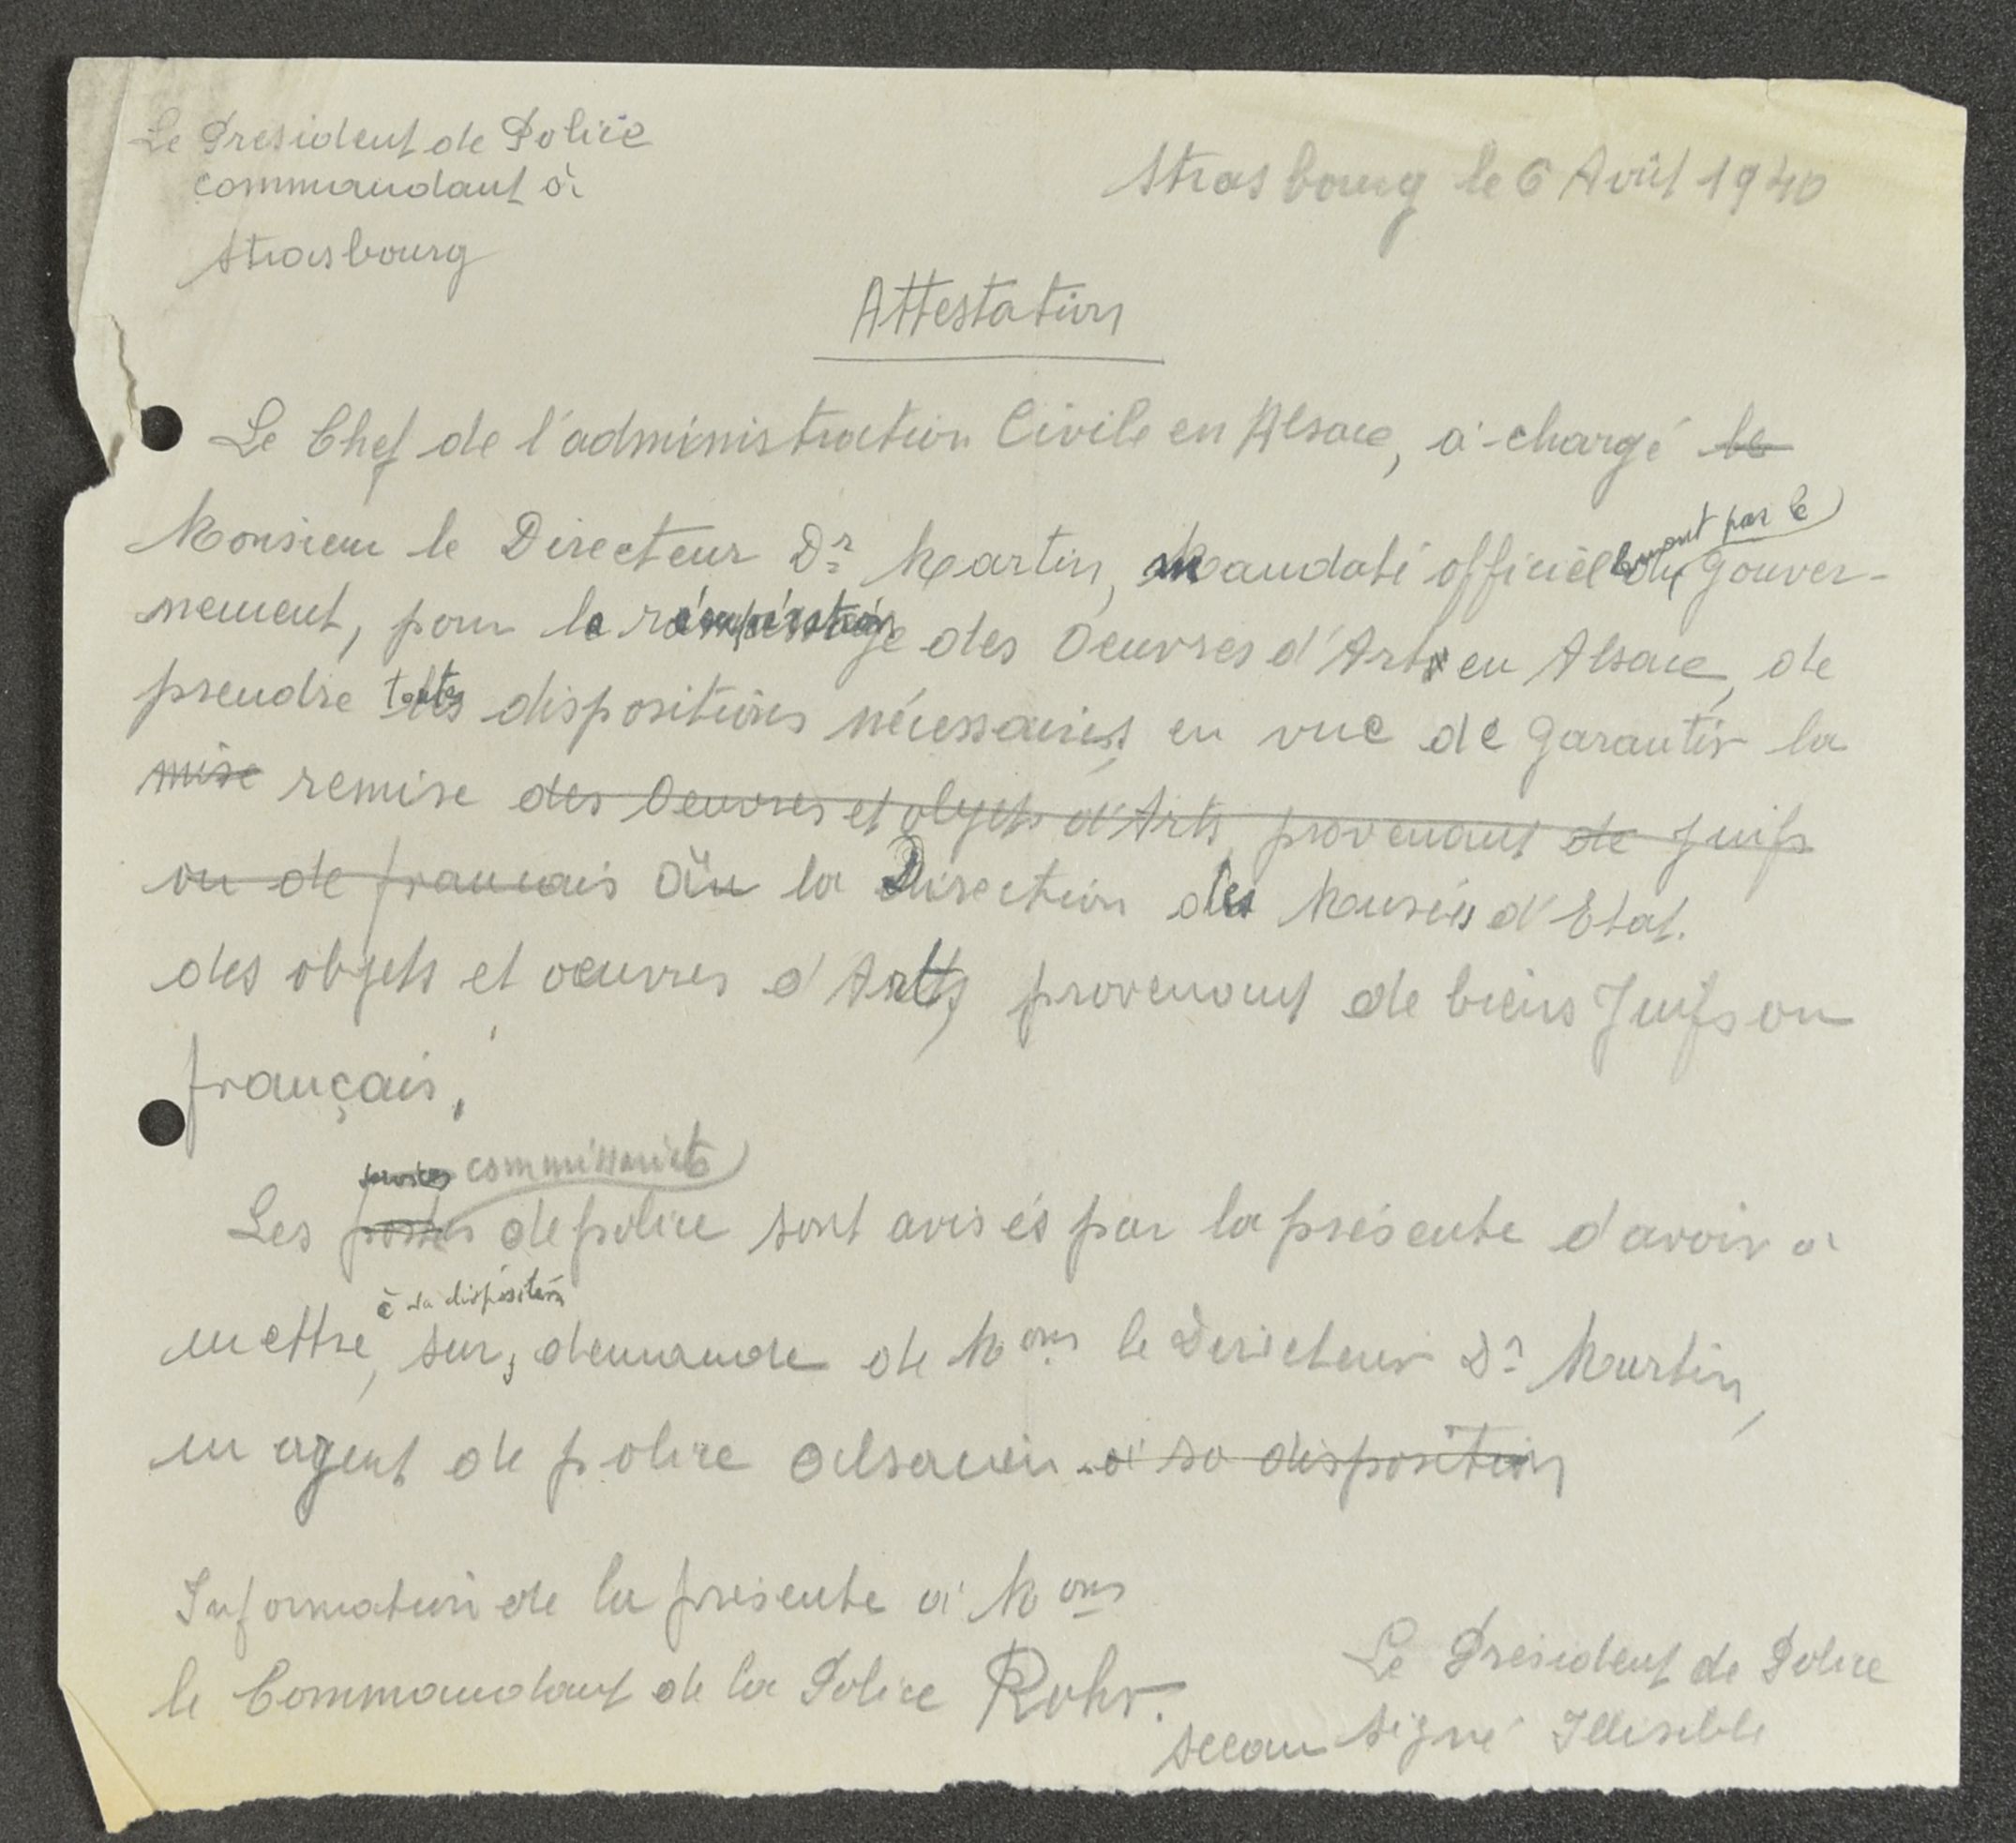 Le President de Police
commandant à
Strasbourg
Strasbourg le 6 Août 1940
Attestation
Le Chef de l'administration Civile en Alsace, a chargé le
Monsieur le Directeur Dr Martin, Mandaté officiellement par le Gouver-
nement, pour la récupération des Oeuvres d'Art en Alsace, de
prendre toutes dispositions nécessaires, en vue de garantir la
mise remise des Oeuvres et objets d'Arts, provenant de Juifs
ou de francais à la Direction des Musées d'Etat.
des objets et oeuvres d'Arts, provenant de biens Juifs ou
français.
services commissariats
Les postes de police sont avisés par la présente d'avoir à
à sa disposition
mettre, sur, demande de Mons le Directeur Dr Martin,
un agent de police alsacien à sa disposition
Information de la présente à Mons
le Commandant de la Police Rohr.
Le Président de Police
sceau signé Illisible